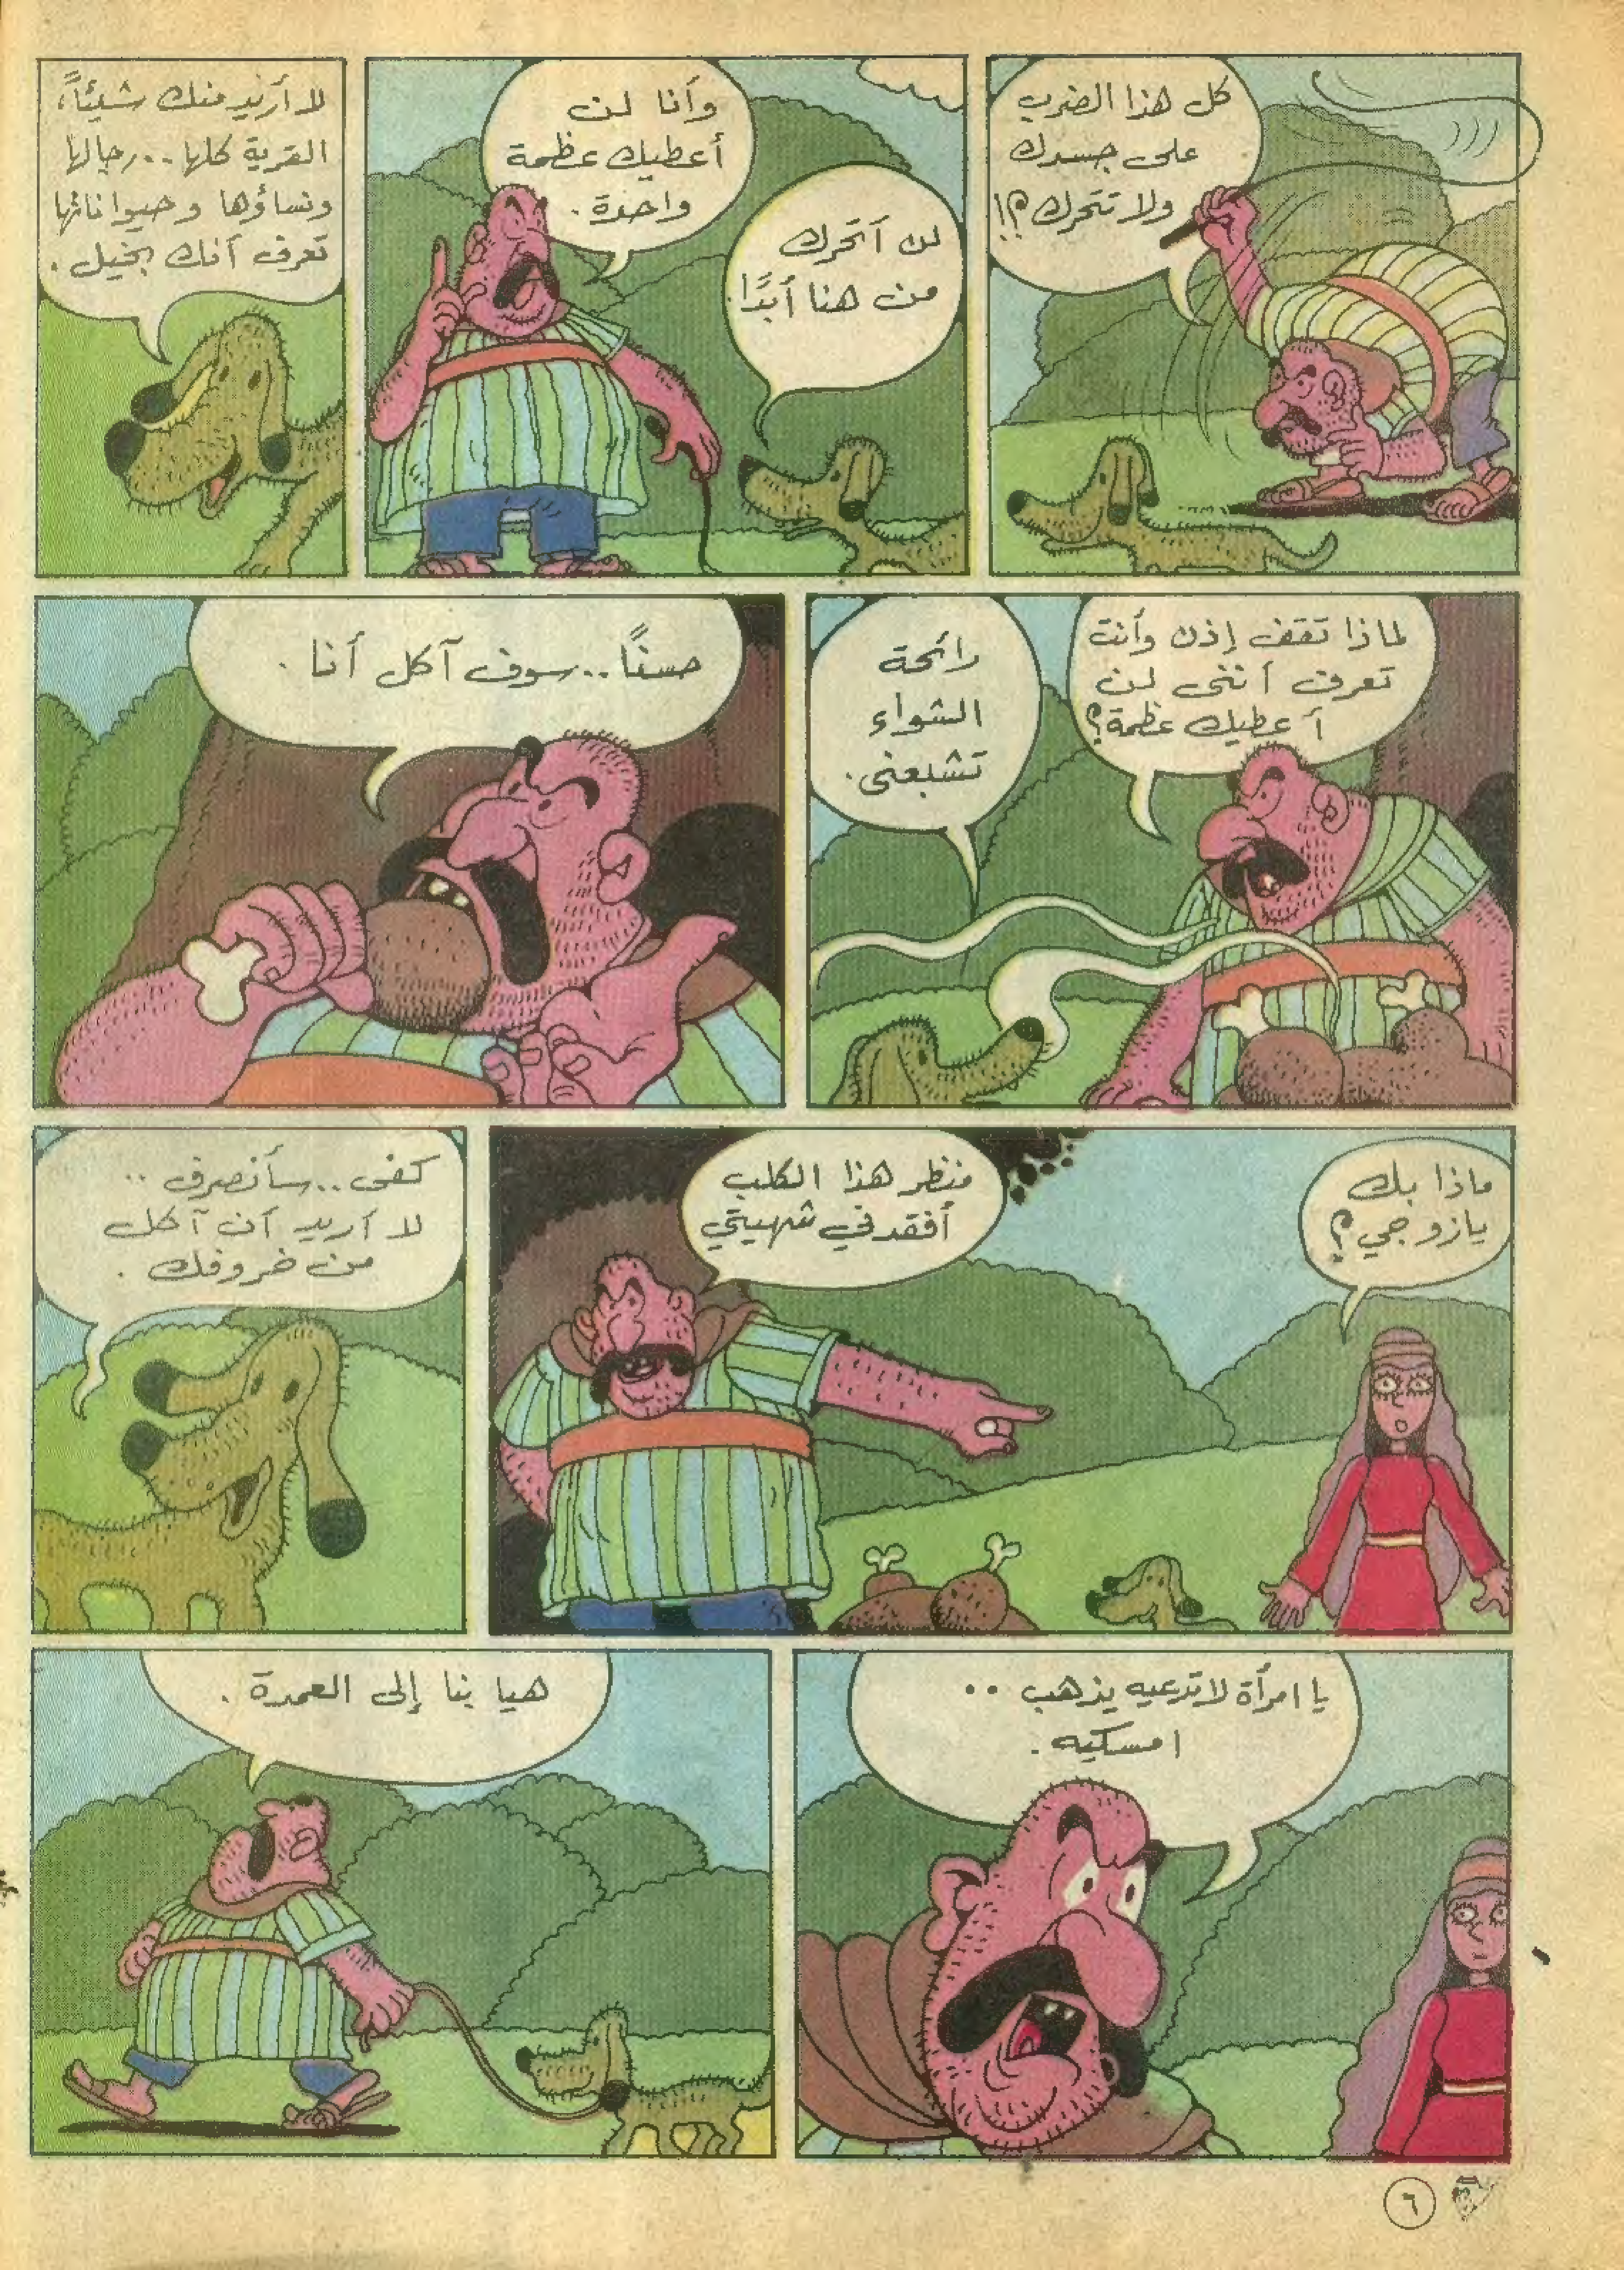 كل هذا الضرب
على جسدك
ولا تتحرك؟!
وأنا لن
أعطيك عظمة
واحدة.
لن أتحرك
من هنا أبدًا.
لا أريد منك شيئاً،
القرية كلها.. رجالها
ونساؤها وحيواناتها
تعرف أنك بخيل.
لماذا تقف إذن وأنت
تعرف أننى لن
أعطيك عظمة؟
رائحة
الشواء
تشبعنى.
حسنًا.. سوف آكل أنا.
ماذا بك
يازوجي؟
منظر هذا الكلب
أفقدني شهيتي
كفى.. سأنصرف..
لا أريد أن آكل
من خروفك.
يا امرأة لا تدعيه يذهب..
امسكيه.
هيا بنا إلى العمدة.
٦